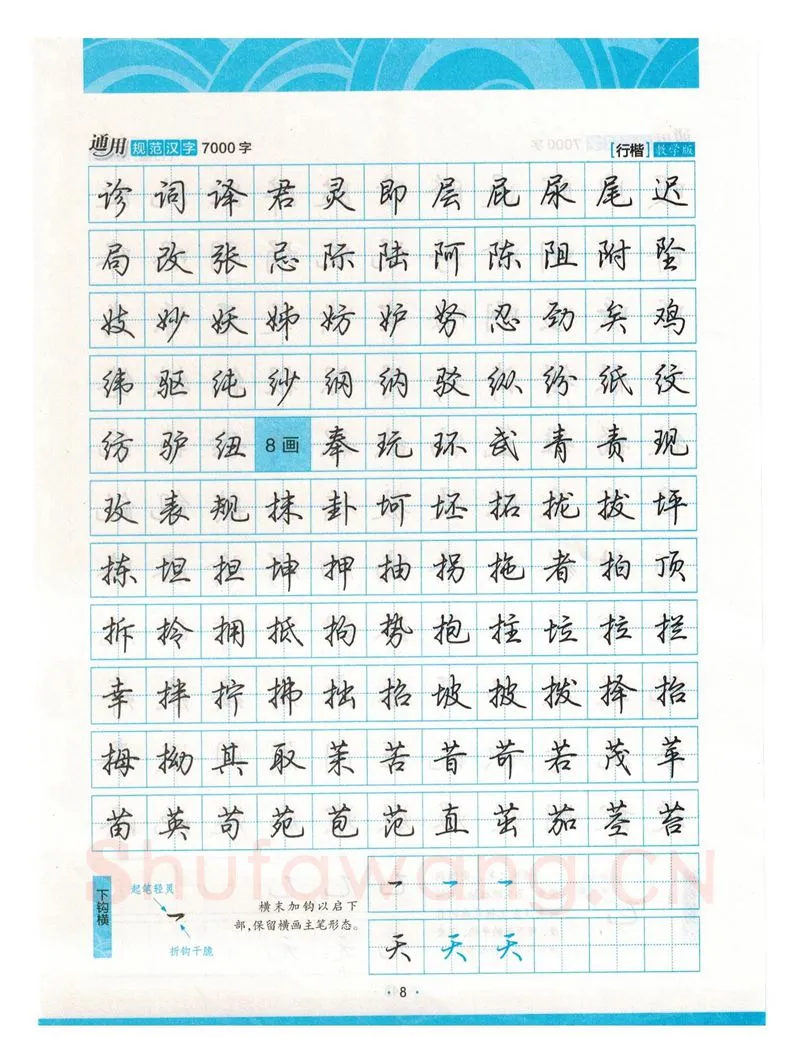 通用 规范汉字 7000 字 [行楷] 教学版
诊词译君灵即层屁尿尾迟
局改张忌际陆阿陈阻附坠
妓妙妖姊妨妒努忍劲矣鸡
纬驱纯纱纲纳驳纵纷纸纹
纺驴纽 8 画 奉玩环武青责现
玫表规抹卦坷坯拓拢拔坪
拣坦担坤押抽拐拖者拍顶
拆拎拥抵拘势抱拄垃拉拦
幸拌拧拂拙招坡披拨择抬
拇拗其取茉苦昔苛若茂苹
苗英苟苑苞范直茁茄茎苔
Shufawang.CN
下钩横
起笔轻灵
折钩干脆
横末加钩以启下
部,保留横画主笔形态。
天 天 天
· 8 ·